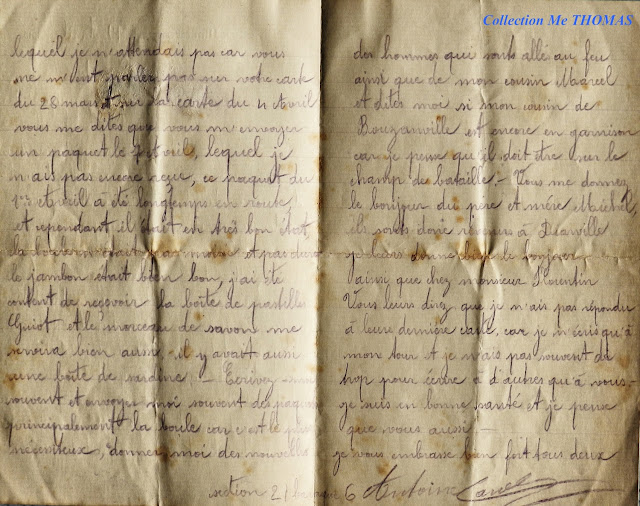 Collection Me THOMAS
lequel je n'attendais pas car vous
me parler pas sur votre carte
du 28 mars et sur la carte du 4 Avril
vous me dites que vous m'envoyer
un paquet le Avril, lequel je
n'ais pas encore reçu, ce paquet du
1er avril à été longtemps en route,
et cependant il était en très bon état
la était et pas
le jambon était bien bon, j'ai été
content de reçevoir la boîte de pastilles
Guiot et le morceau de savon me
servira bien aussi, il y avait aussi
une boîte de sardine - Ecrivez-moi
souvent et envoyer moi souvent des paquets
principalement la boule car c'est le plus
nécessieux, donner moi des nouvelles
des hommes qui sont allé au feu
ainsi que de mon cousin Marcel
et dites moi si mon cousin de
Bouzanville est encore en garnison
car je pense qu'il doit être sur le
champ de bataille. - Vous me donnez
le bonjour du père et mère Michel
ils sont donc à
je leurs donne le bonjour
ainsi que chez monsieur Florentin
Vous leurs direz que je n'ais pas répondu
à leure dernière carte, car je n'écris qu'à
mon tour et je n'ais pas souvent de
trop pour écrire à d'autres qu'à vous -
je suis en bonne santé et je pense
que vous aussi -
je vous embrasse bien fort tous deux
section 21 6 Antoine